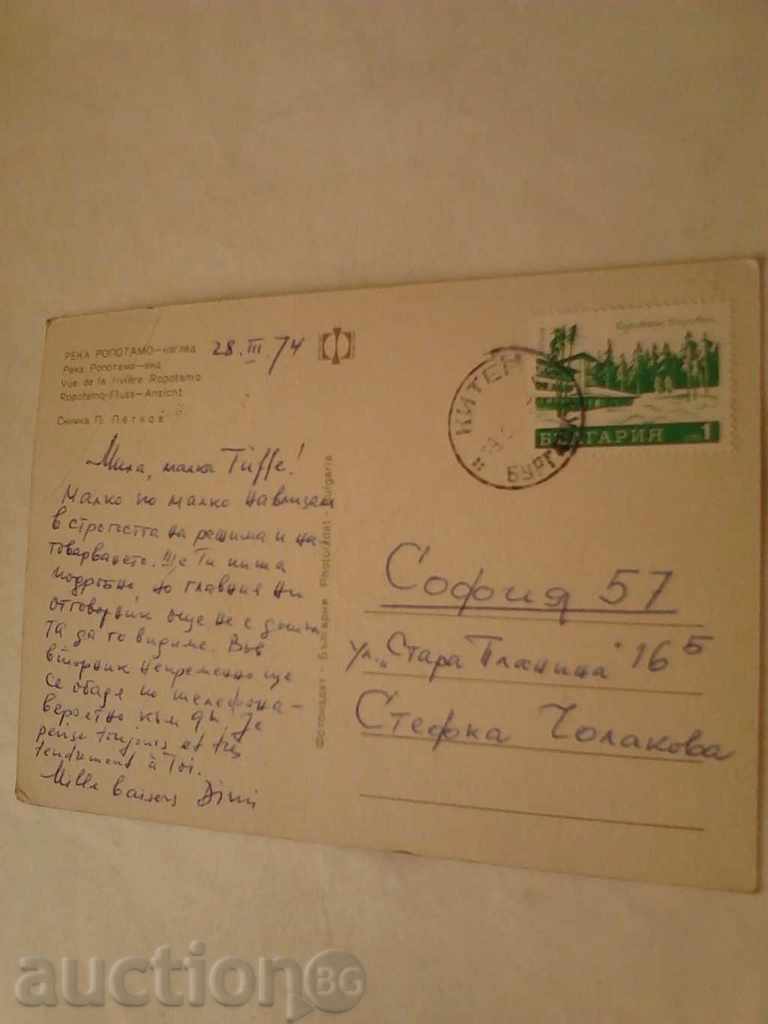 РЕКА РОПОТАМО—изглед
Река Ропотамо—вид
Vue de la rivière Ropotamo
Ropotamo-Fluss—Ansicht
Снимка П. Петков
28. III 74
Мила, малка Tüffe!
Малко по малко навлизам
в строгостта на режима и на-
товарването. Ще Ти пиша
подробно, но главния ни
отговорник още не е дошъл
та да го видиме. Във
вторник непременно ще
се обадя по телефона —
вероятно към 9ч. Je
pense toujours et très
tendrement à Toi.
Mille baisers Dimi
Фотоиздат - България Photoizdat - Bulgaria
КИТЕН
БУРГАСКИ
БЪЛГАРИЯ 1
София 57
ул. „Стара Планина" 16 5
Стефка Чолакова
auctionBG